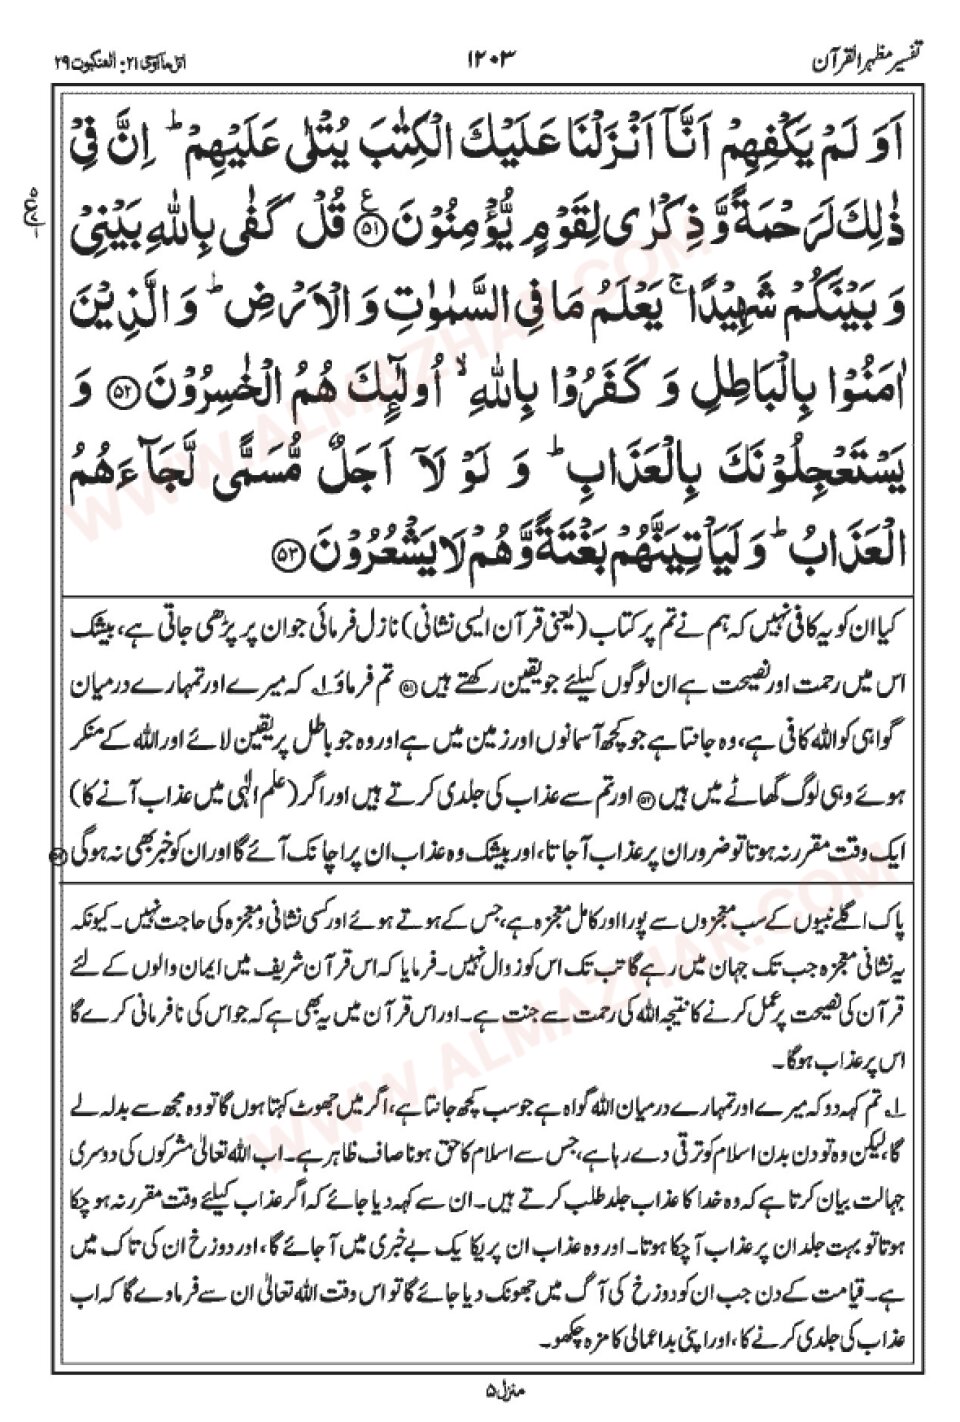 تفسیر مظہر القرآن
۱۲۰۳
اتل ماآوحی ۲۱: العنکبوت ۲۹
اَوَ لَمۡ یَکۡفِهِمۡ اَنَّاۤ اَنۡزَلۡنَا عَلَیۡكَ الۡکِتٰبَ یُتۡلٰی عَلَیۡهِمۡ ؕ اِنَّ فِیۡ
ذٰلِكَ لَرَحۡمَةً وَّ ذِکۡرٰی لِقَوۡمٍ یُّؤۡمِنُوۡنَ ﴿۵۱﴾ع قُلۡ کَفٰی بِاللّٰهِ بَیۡنِیۡ
وَ بَیۡنَکُمۡ شَهِیۡدًا ۚ یَعۡلَمُ مَا فِی السَّمٰوٰتِ وَ الۡاَرۡضِ ؕ وَ الَّذِیۡنَ
اٰمَنُوۡا بِالۡبَاطِلِ وَ کَفَرُوۡا بِاللّٰهِ ۙ اُولٰٓئِكَ هُمُ الۡخٰسِرُوۡنَ ﴿۵۲﴾ وَ
یَسۡتَعۡجِلُوۡنَكَ بِالۡعَذَابِ ؕ وَ لَوۡ لَاۤ اَجَلٌ مُّسَمًّی لَّجَآءَهُمُ
الۡعَذَابُ ؕ وَ لَیَاۡتِیَنَّهُمۡ بَغۡتَةً وَّ هُمۡ لَا یَشۡعُرُوۡنَ ﴿۵۳﴾
کیا ان کو یہ کافی نہیں کہ ہم نے تم پر کتاب (یعنی قرآن ایسی نشانی) نازل فرمائی جو ان پر پڑھی جاتی ہے، بیشک
اس میں رحمت اور نصیحت ہے ان لوگوں کیلئے جو یقین رکھتے ہیں ﴿۵۱﴾ تم فرماؤ ۱ کہ میرے اور تمہارے درمیان
گواہی کو اللہ کافی ہے، وہ جانتا ہے جو کچھ آسمانوں اور زمین میں ہے اور وہ جو باطل پر یقین لائے اور اللہ کے منکر
ہوئے وہی لوگ گھاٹے میں ہیں ﴿۵۲﴾ اور تم سے عذاب کی جلدی کرتے ہیں اور اگر (علم الٰہی میں عذاب آنے کا)
ایک وقت مقرر نہ ہوتا تو ضرور ان پر عذاب آجاتا، اور بیشک وہ عذاب ان پر اچانک آئے گا اور ان کو خبر بھی نہ ہوگی ﴿۵۳﴾
پاک اگلے نبیوں کے سب معجزوں سے پورا اور کامل معجزہ ہے، جس کے ہوتے ہوئے اور کسی نشانی و معجزہ کی حاجت نہیں۔ کیونکہ
یہ نشانی معجزہ جب تک جہان میں رہے گا تب تک اس کو زوال نہیں۔ فرمایا کہ اس قرآن شریف میں ایمان والوں کے لئے
قرآن کی نصیحت پر عمل کرنے کا نتیجہ اللہ کی رحمت سے جنت ہے۔ اور اس قرآن میں یہ بھی ہے کہ جو اس کی نافرمانی کرے گا
اس پر عذاب ہوگا۔
۱ تم کہہ دو کہ میرے اور تمہارے درمیان اللہ گواہ ہے جو سب کچھ جانتا ہے، اگر میں جھوٹ کہتا ہوں گا تو وہ مجھ سے بدلہ لے
گا، لیکن وہ تو دن بدن اسلام کو ترقی دے رہا ہے، جس سے اسلام کا حق ہونا صاف ظاہر ہے۔ اب اللہ تعالیٰ مشرکوں کی دوسری
جہالت بیان کرتا ہے کہ وہ خدا کا عذاب جلد طلب کرتے ہیں۔ ان سے کہہ دیا جائے کہ اگر عذاب کیلئے وقت مقرر نہ ہوچکا
ہوتا تو بہت جلد ان پر عذاب آچکا ہوتا۔ اور وہ عذاب ان پر یکایک بے خبری میں آجائے گا، اور دوزخ ان کی تاک میں
ہے۔ قیامت کے دن جب ان کو دوزخ کی آگ میں جھونک دیا جائے گا تو اس وقت اللہ تعالیٰ ان سے فرماوے گا کہ اب
عذاب کی جلدی کرنے کا، اور اپنی بداعمالی کا مزہ چکھو۔
منزل ۵
WWW.ALMAZHAR.COM
WWW.ALMAZHAR.COM